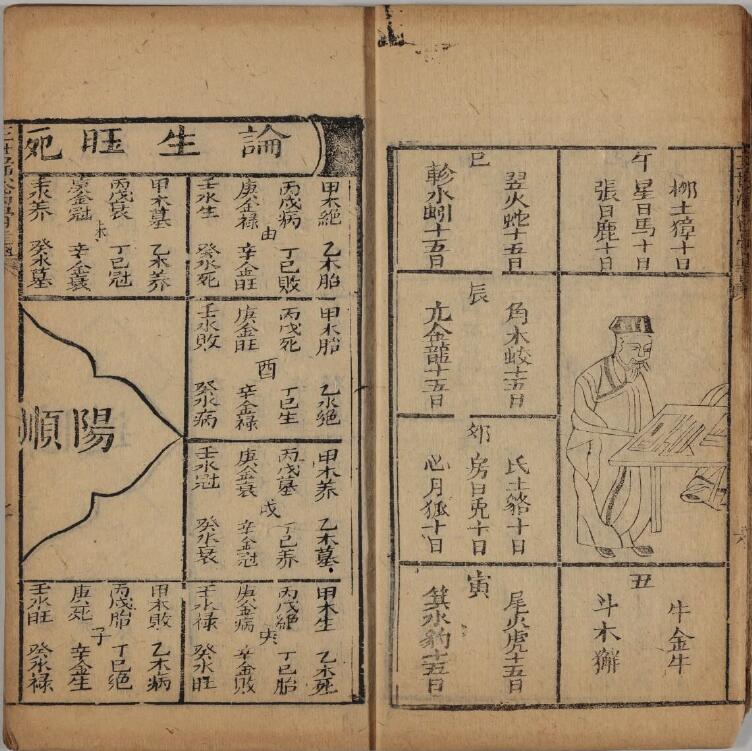 栁土獐十日
午
星日馬十日
張日鹿十日
翌火蛇十五日
巳
軫水蚓十五日
角木蛟十五日
辰
亢金龍十五日
氐土貉十日
卯
房日兎十日
心月狐十日
尾火虎十五日
寅
箕水豹十五日
牛金牛
丑
斗木獬
論生旺死
甲木絕 乙木胎
丙戊病 丁巳敗
申
庚金禄 辛金旺
壬水生 癸水死
甲木墓 乙木养
丙戊衰 丁巳冠
未
庚金冠 辛金衰
壬水养 癸水墓
甲木胎 乙木絕
丙戊死 丁巳生
酉
庚金旺 辛金禄
壬水敗 癸水病
陽順
甲木养 乙木墓
丙戊墓 丁巳养
戌
庚金衰 辛金冠
壬水冠 癸水衰
甲木生 乙木死
丙戊絕 丁巳胎
亥
庚金病 辛金敗
壬水禄 癸水旺
甲木敗 乙木病
丙戊胎 丁巳絕
子
庚死 辛金生
壬水旺 癸水禄